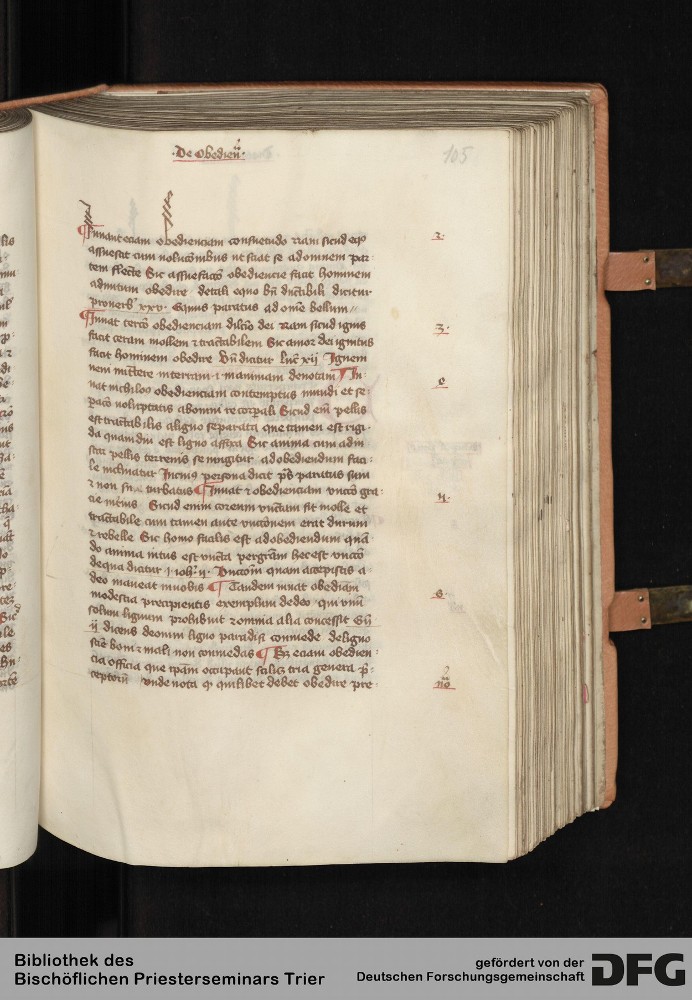 De obedien
105
Iuuant eciam obedienciam consuetudo nam sicud equs
assuescit cum uolucōnibus ut sciat se ad omnem par
tem flectẽ Sic assuefacō obediencie facit hominem
ad nutum obedire de tali equo bñ ductibili dicitur
prouerb xxv Equus paratus ad omē bellum
2.
Iuuat tercō obedienciam dilcō dei Nam sicud ignis
3.
facit ceram mollem et tractabilem Sic amor dei ignitus
facit hominem obedire Vñ dicitur luc xii Ignem
ueni mittere in terram
Iu
uat obedienciam contemptus mundi et se
paco voluptatis ab omni re corpali Sicud em pellis
est tractabilis a ligno separata que tamen est rigi
da quamdiu est ligno affixa Sic anima cum a
pellis terrenis se iungitur ad obediendum faci
le inclinatur In cuius persona dicit ps paratus sum
et non sum turbatus Iuuat et obedienciam vnctō gra
cie Sicud enim coreum vnctum fit molle et
tractabile cum tamen ante vnctōnem erat durum
et rebelle Sic homo facilis est ad obediendum quan
do anima intus est vncta per gram hec est vnctō
de qua dicitur i ioh ii Vnctōm quam accepistis a
deo maneat in uobis Tandem iuuat obedienciam
modestia precipientis exemplum de deo qui vnū
solum lignum prohibuit et omnia alia concessit Gn̄
ii dicens de omni ligno paradisi comede de ligno
scie boni et mali non comedas eciam obedien
cia officia que occupant scilicet tria genera p
ceptorū vnde nota quilibet debet obedire pre
nō
Bibliothek des
Bischöflichen Priesterseminars Trier
gefördert von der
Deutschen Forschungsgemeinschaft
DFG